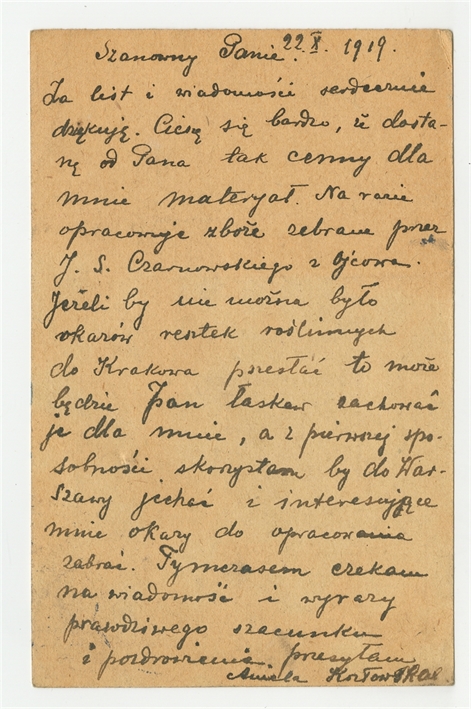 Szanowny Panie. 22.X. 1919.
Za list i wiadomości serdecznie
dziękuję. Cieszę się bardzo, iż dosta-
nę od Pana tak cenny dla
mnie materyał. Na razie
opracowuję zboże zebrane przez
J. S. Czarnowskiego z Ojcowa.
Jeżeli by nie można było
okazów resztek roślinnych
do Krakowa przesłać to może
będzie Pan łaskaw zachować
je dla mnie, a z pierwszej spo-
sobności skorzystam by do War-
szawy jechać i interesujące
mnie okazy do opracowania
zabrać. Tymczasem czekam
na wiadomość i wyrazy
prawdziwego szacunku
i pozdrowienia przesyłam
Aniela Kozłowska